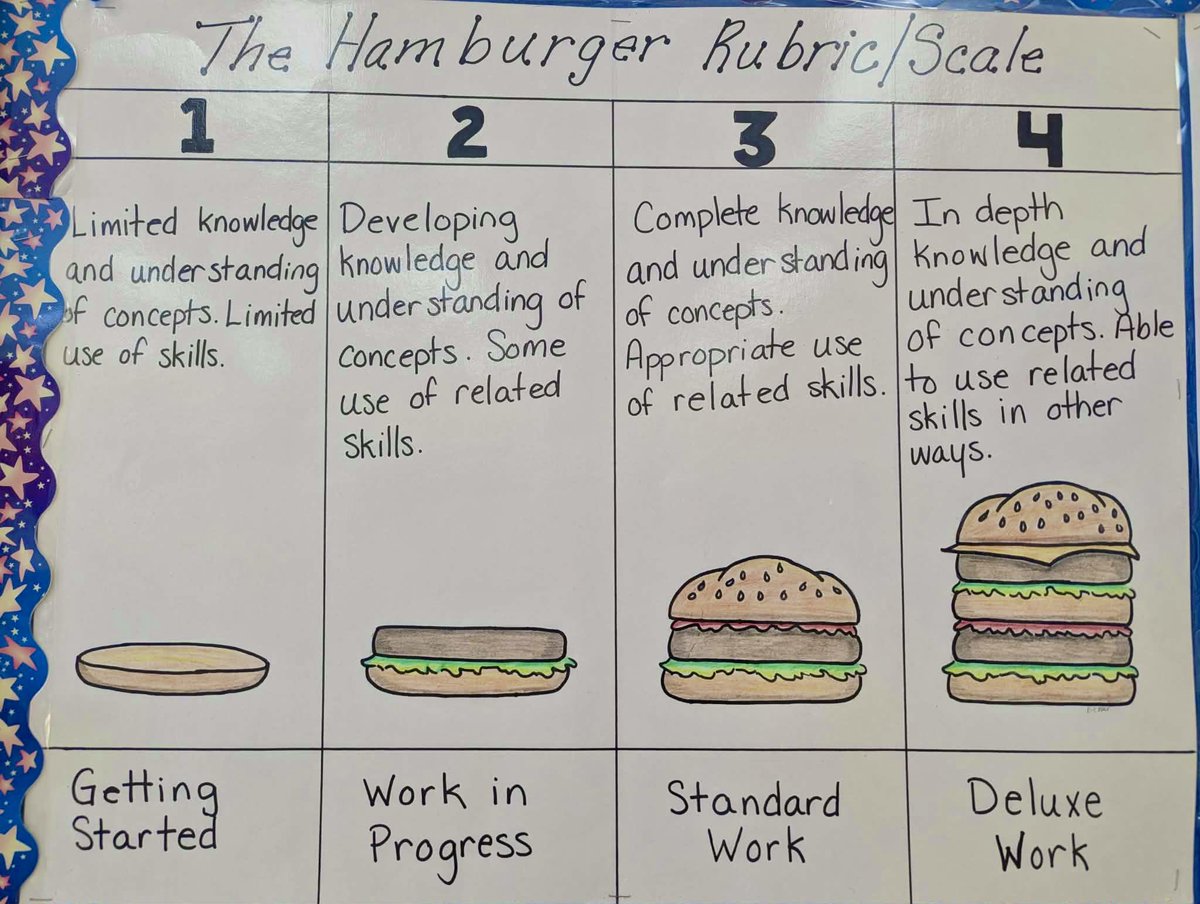 The Hamburger Rubric/Scale
1
2
3
4
Limited knowledge
and understanding
of concepts. Limited
use of skills.
Developing
knowledge and
understanding of
concepts. Some
use of related
skills.
Complete knowledge
and understanding
of concepts.
Appropriate use
of related skills.
In depth
knowledge and
understanding
of concepts. Able
to use related
skills in other
ways.
Getting
Started
Work in
Progress
Standard
Work
Deluxe
Work